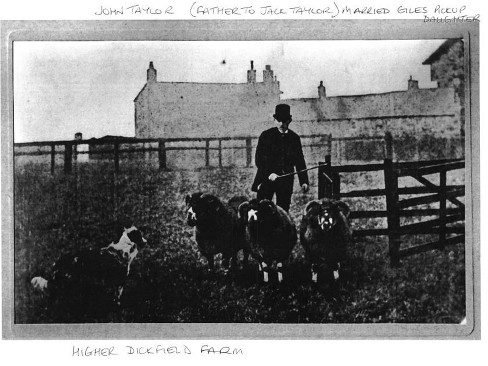 JOHN TAYLOR (FATHER TO JACK TAYLOR) MARRIED GILES PICKUP
DAUGHTER
HIGHER DICKFIELD FARM